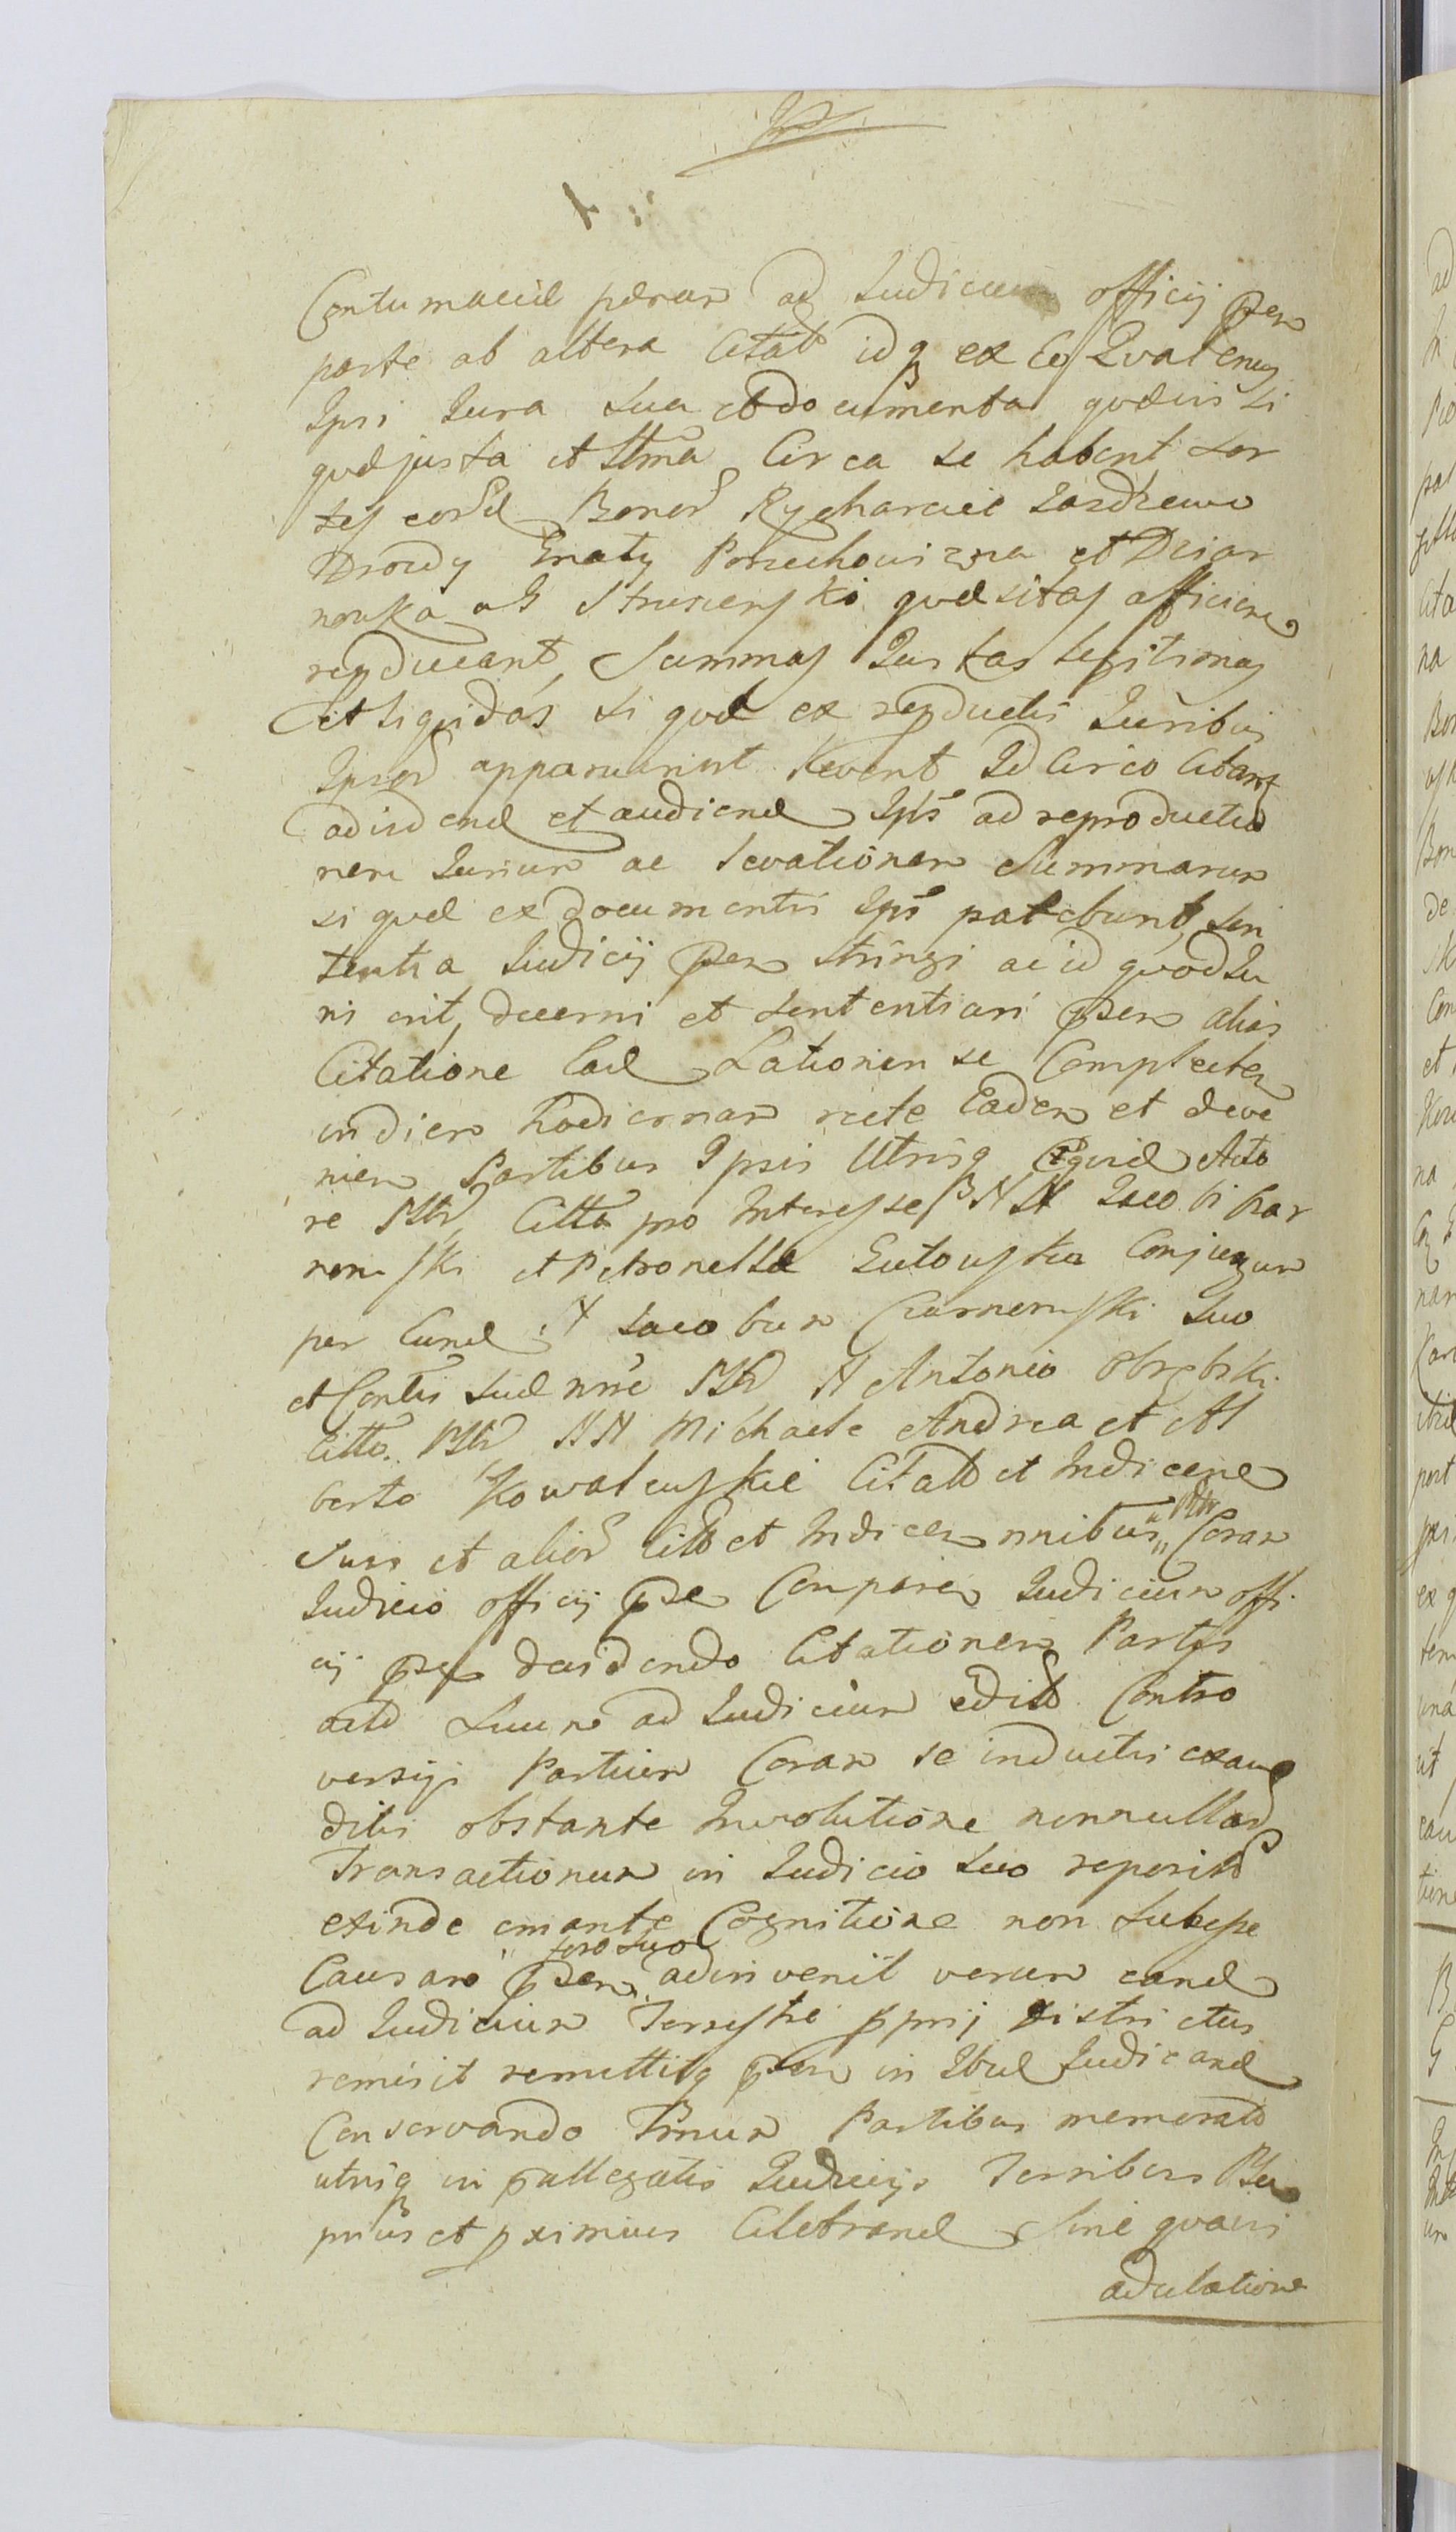 Contumaciae ad Iudicium officij psen
parte ab altera Citat idq ex Eo Quatenus
Ipsi Iura sua et documenta quaevis si
quae justa et ltma Circa se habent Sor
tes eord Bonor Rycharcice Zazdzewo
Drozdy Gnaty et Dziar
nowka aG Strusienski quaesitas afficien
repducant, Summas Iustas legitimas
et liquidas si quae ex repductis Iuribus
Ipsor apparuerint levent Id Circo Citant
ad idend et audiend Ips ad reproductio
nem Iurium ac levationem Summarum
si quae ex documentis Ips patebunt, Sen
tentia Iudicij psen stringi ac id quod Iu
ris erit, decerni et sententiari psen alias
Citatione Ead Lationem se Complecten
in diem hodiernam recte Caden et deve
nien Partibus Ipsis Utrisq Equid Acto
re Mtr Citto pro Interesse NN Iacobi Czar
nomski et Petronella Gutowska Conjugum
per Eund N Iacobum Czarnomski Suo
et Contis suae nne Mtr N Antonio Obrebski
Citto Mtr NN Michaele Andrea et Al
berto Kowalewskie Citato et Indicene
Suis et alior Citto et Indicen omnibus " Mtr Coram
Iudicio officij pse Comparen Iudicium offi
cij psen decidendo Citationem Partis
acto Suum ad Iudicium edito Contro
versijs Partium Coram se inductis exau
ditis obstante Involutione nonnullar
Transactionum in Iudicio Suo reposito
exinde emante Cognitione non Subesse
Causam psen " foro Suo adinvenit verum eand
ad Iudicium Terrestre pprij Districtus
remisit remittitq psen in Ibid Iudicand
Conservando Tmum Partibus memorato
utrisq in pallegatis Iudicijs Terribus
primis et pximius Celebrand Sine quavis
adcitatione